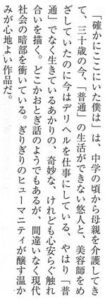 『確かにここにいた僕は』は、中学の頃から母親を介護してき
て、三十歳の今、「普通」の生活ができない悠人と、美容師をめ
ざしていたのに今はデリヘルを仕事にしている、やはり「普
通」でなく生きているあかりの、奇妙な、けれども心安らぐ触れ
合いを描く。どこかおとぎ話のようでもあるが、間違いなく現代
社会の暗部を衝いている。ぎりぎりのヒューマニティが醸す温か
みが心地よい作品だ。